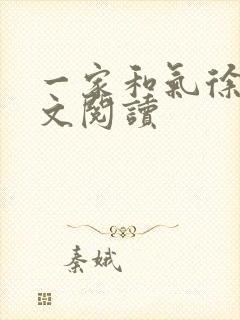 一家和氣徐
文閱讀
秦娥